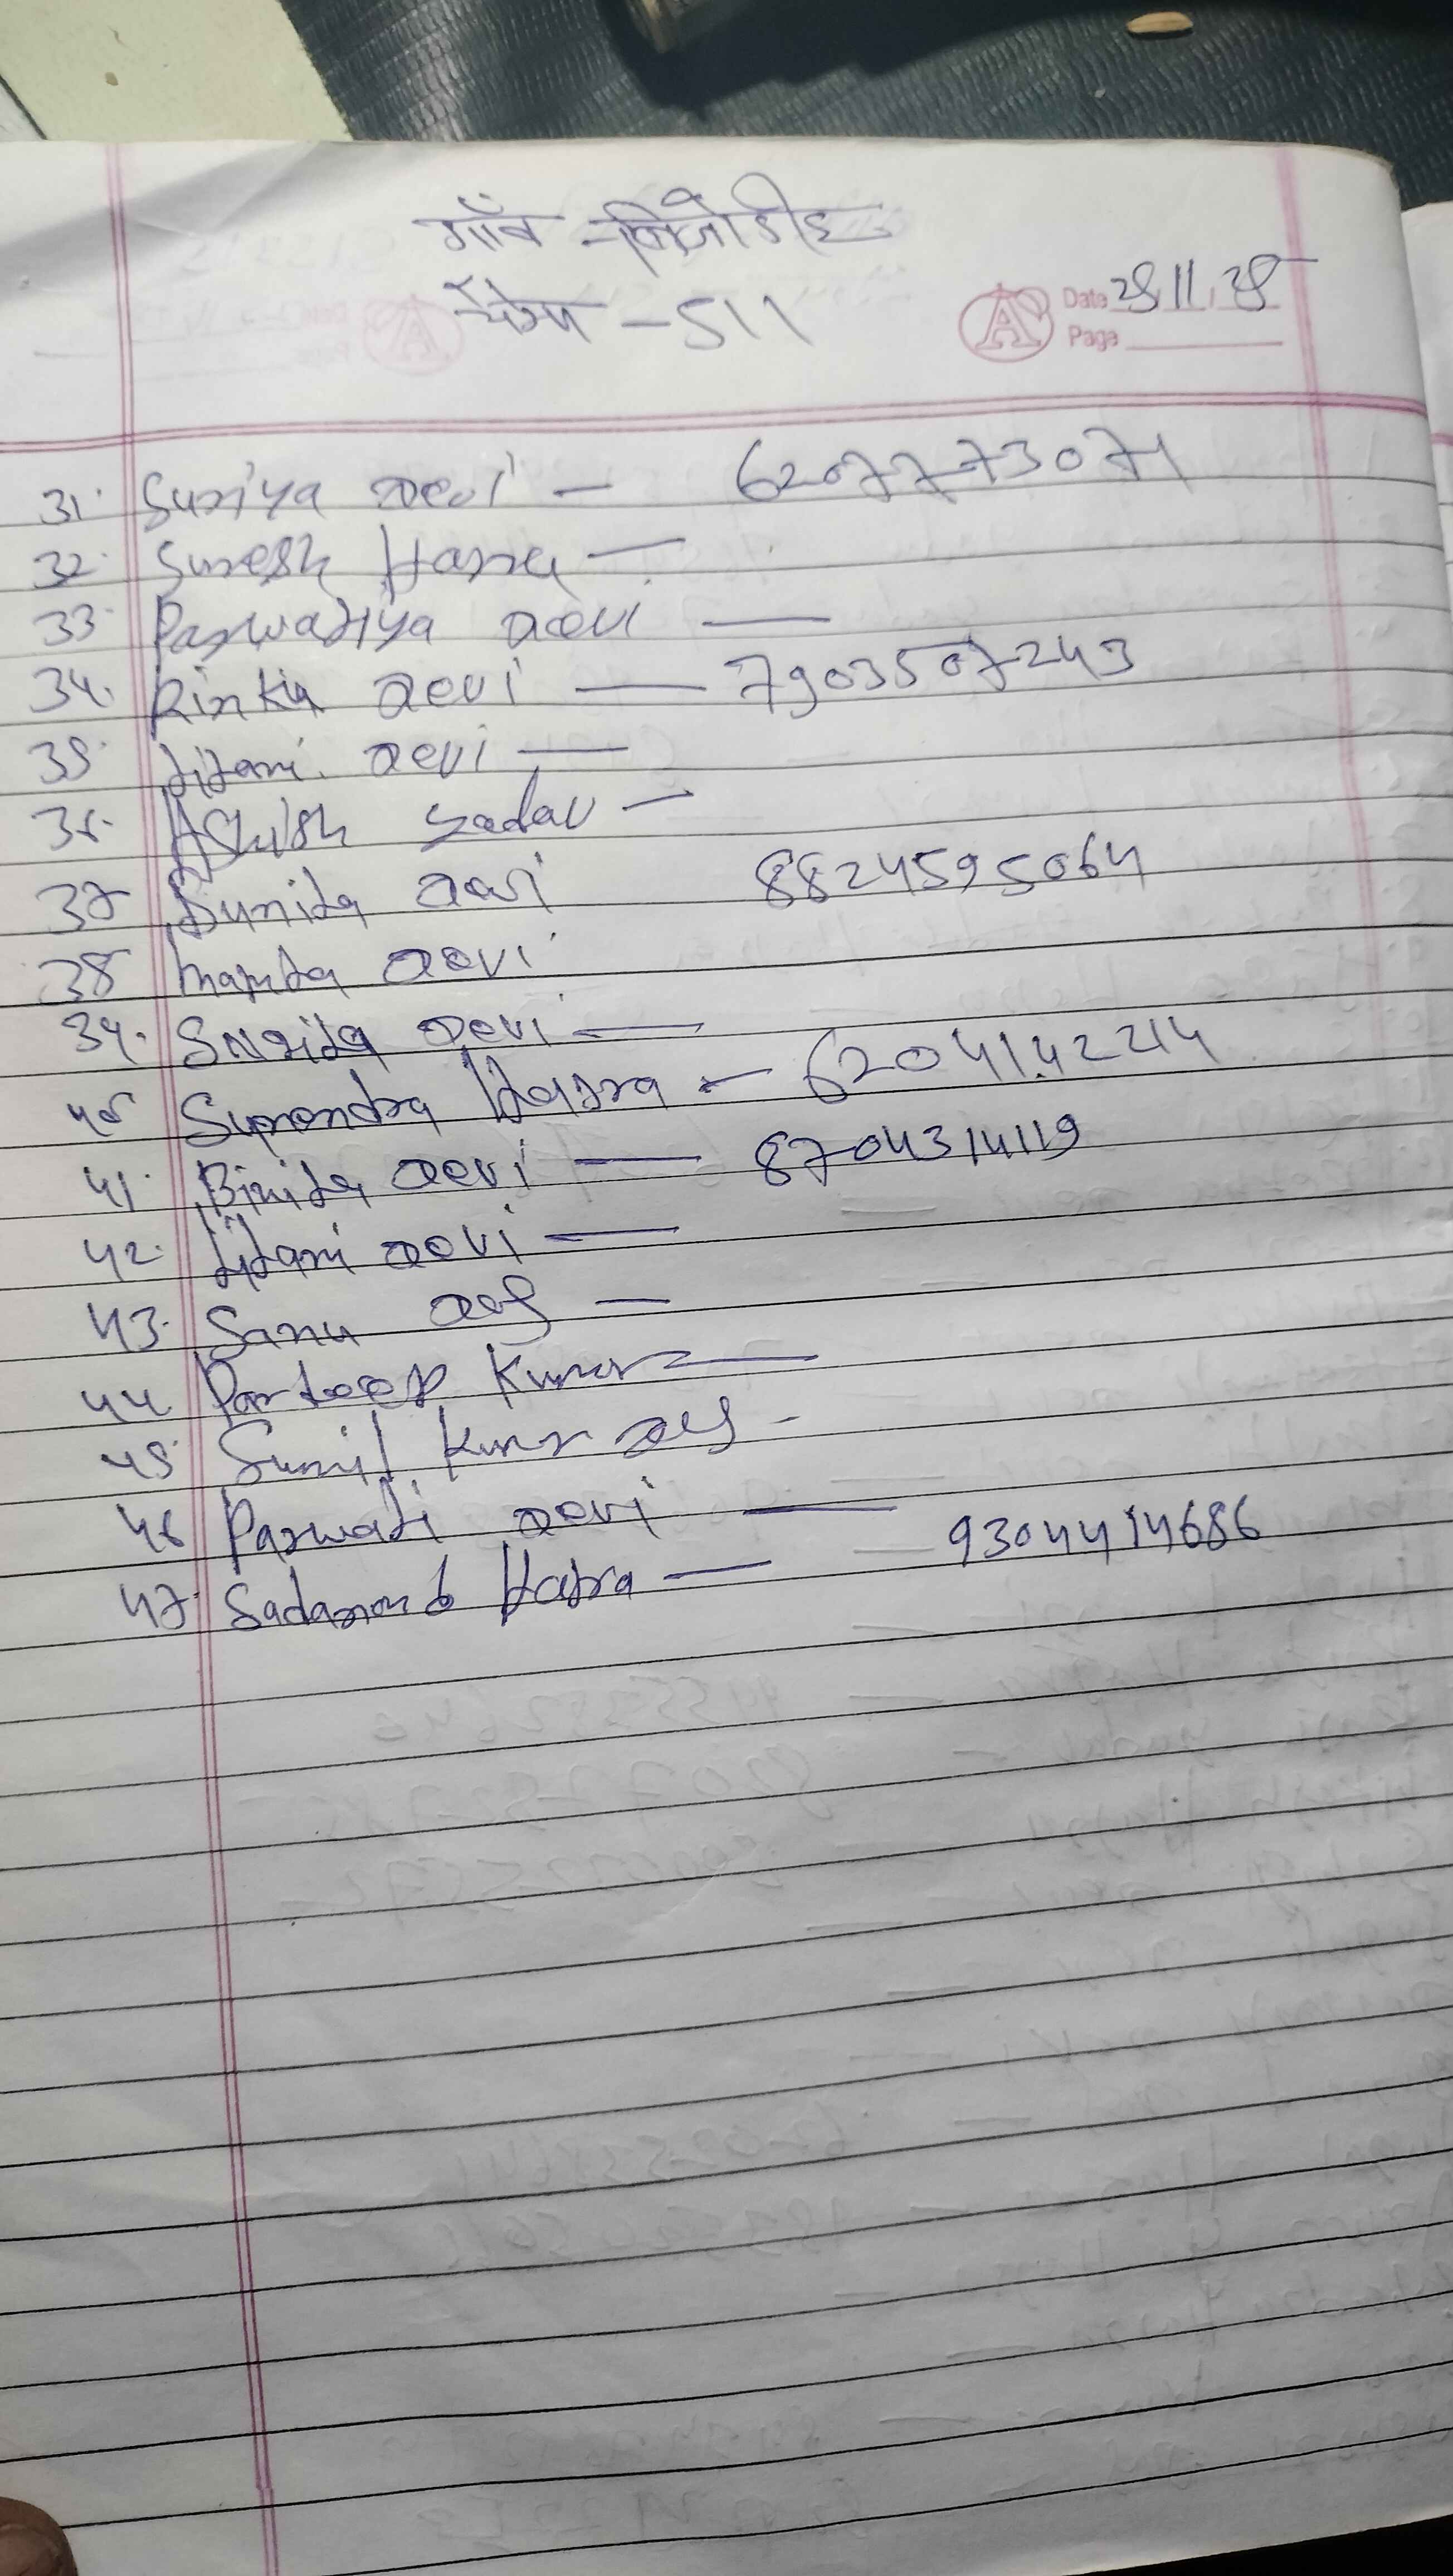 गाँव -
कैम्प - 511
Date 28/11/25
Page
31. Suriya Devi - 6207773071
32. Suresh Hazra -
33. Parwatiya Devi -
34. Rinkia Devi - 7903507243
35. Jitani Devi -
36. Ashish Yadav -
37 Sunita Devi 8824595064
38 Mamta Devi
39. Sunita Devi -
40 Surendra Hazra - 6204142214
41. Binita Devi - 8704314119
42. Jitani Devi -
43. Sanu Das -
44. Pardeep Kumar -
45 Sunil Kumar Das -
46 Parwati Devi -
47. Sadanand Hazra - 9304414686